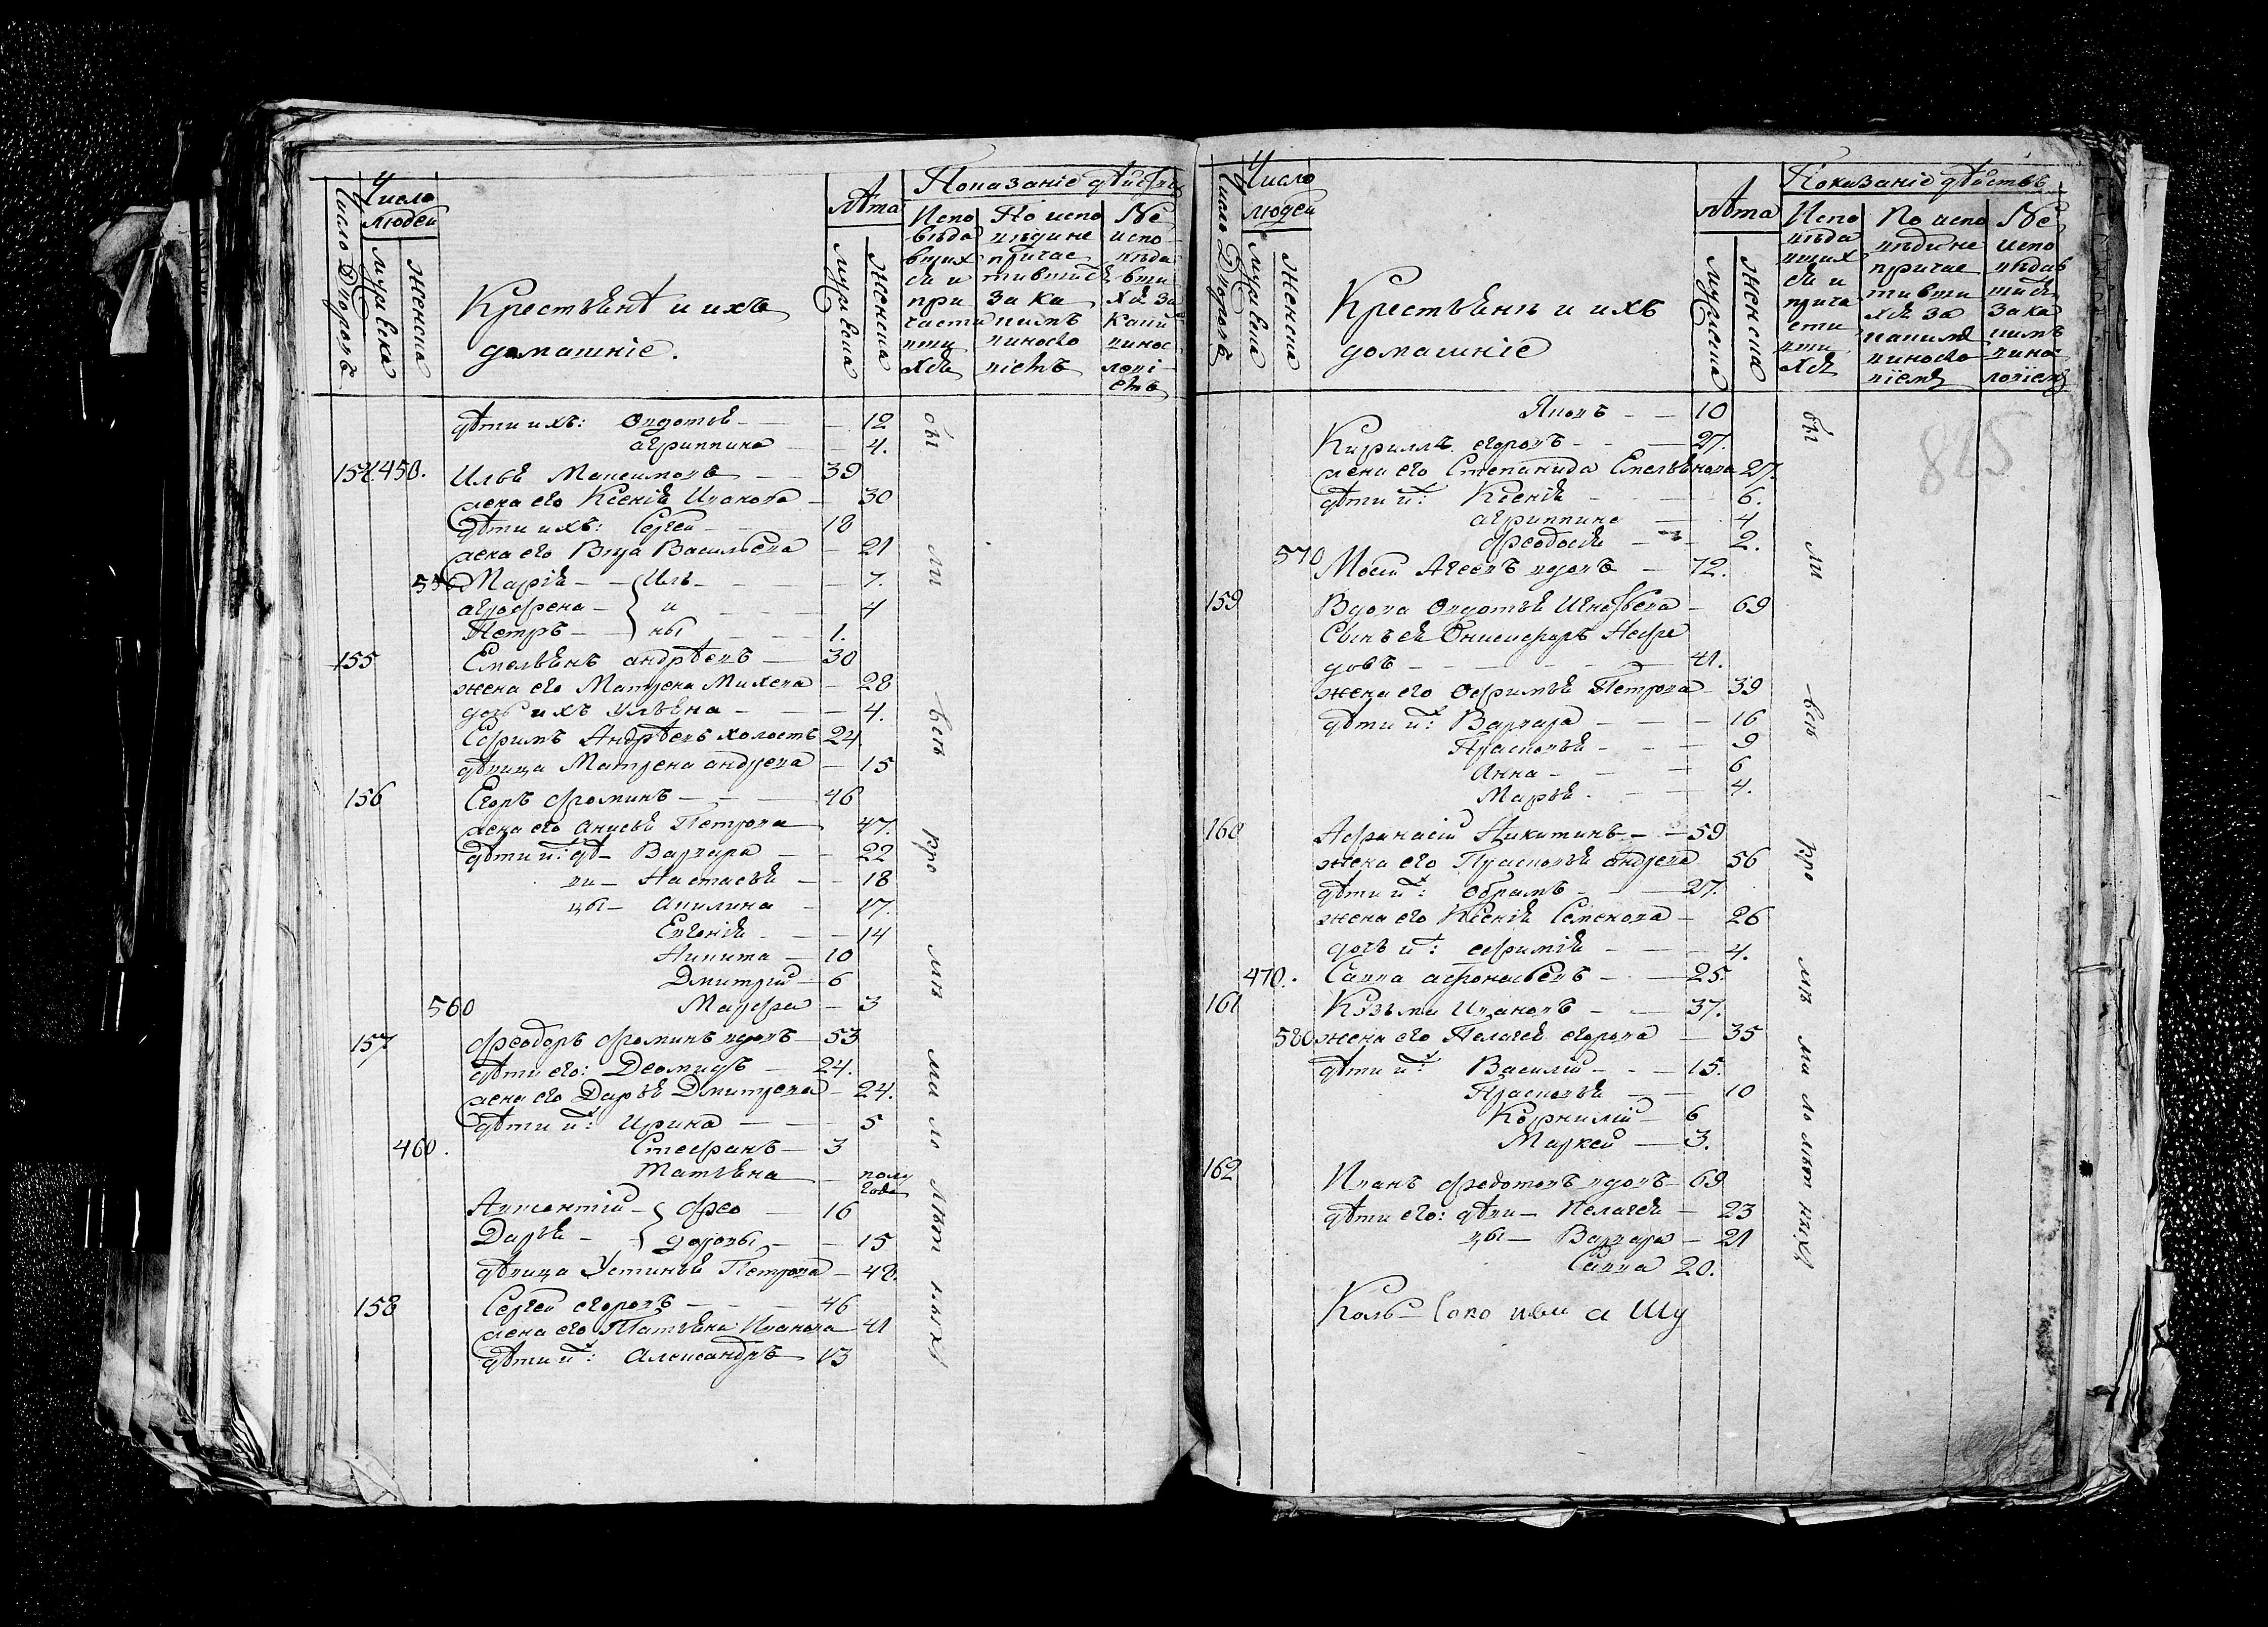 Число Дворовъ
Число людей
мужеска
женска
Крестьянѣ и ихъ
домашнiе.
Лѣта
мужеска
женска
Показанiе дѣйствъ
Испо
вѣда
вших
ся и
при
части
вши
хся
По испо
вѣди не
причас
тившiяся
за ка
кимъ
виносло
вiемъ
Не
испо
вѣда
вши
хся за
каким
винос
ловi
емъ
дѣти ихъ: Овдотья — 12
агриппина — 4.
154. 450. Илья Максимовъ — 39
жена его Ксенiя Иванова — 30
Дѣти ихъ: Сергей — 18
жена его Вѣра Васильева — 21
550 Марiя — Иль — 7.
агрофена — и — 4
Петръ — ны — 1.
155 Емельянъ андрѣевъ — 30
жена его Матрена Михева — 28
дочь ихъ Ульяна — 4.
Ефимъ Андрѣевъ холостъ 24
дѣвица Матрена андреева — 15
156 Егоръ фоминъ — 46
жена его анисья Петрова — 47.
дѣти их: дѣ— Варвара — 22
ви— Настасья — 18
цы— Акилина — 17.
Евгенiя — 14
Никита — 10
Дмитрiй — 6
560 Марфа — 3
157 феодоръ фоминъ вдовъ — 53
дѣти его: Деомидъ — 24.
жена его Дарья Дмитрева — 24.
дѣти их: Ирина — 5
460. Стефанъ — 3
Татьяна — полу
года
Авксентiй — фео — 16
Дарья — доровы — 15
дѣвица Устинья Петрова — 48.
158 Сергей егоровъ — 46
жена его Татьяна Иванова — 41
дѣти их: Александръ 13
бы
ли
всѣ
кро
мѣ
ма ло лѣт нихъ
Число Дворовъ
Число людей
мужеска
женска
Крестьянѣ и ихъ
домашнiе
Лѣта
мужеска
женска
Показанiе дѣйствъ
Испо
вѣда
вших
ся и
прича
сти
вши
хся
По испо
вѣди не
причас
тивши
хся за
какимъ
виносло
вiемъ
Не
испо
вѣдав
шихся
за ка
кимъ
вино
ловiемъ
885
Яковъ — 10
Кириллъ егоровъ — 27.
жена его Степанида Емельянова 27.
дѣти их: Ксенiя — 6.
агриппина — 4
феодосья — 2.
570 Мосей Агеевъ вдовъ — 72.
159 Вдова Овдотья Игнатьева — 69
Сынъ ея Онисифоръ Нефе
довъ — 41.
жена его офимья Петрова — 39
дѣти их: Варвара — 16
Прасковья — 9
Анна — 6
Марья — 4.
160 Афанасiй Никитинъ — 59
жена его Прасковья андреева 56
дѣти их: Обрамъ — 27.
жена его Ксенiя Семенова — 26
дочь их: ефимiя — 4.
470. Савва афонасьевъ — 25.
161 Козьма Ивановъ — 37.
580 жена его Пелагея егорова — 35
дѣти их: Василiй — 15.
Прасковья — 10
Корнилiй — 6
Маркей — 3.
162 Иванъ федотовъ вдовъ — 69
дѣти его: дѣви— Пелагея — 23
цы— Варвара — 21
Савва 20.
бы
ли
всѣ
кро
мѣ
ма ло лѣт нихъ